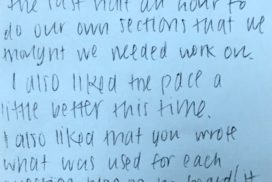 the last half an hour to
do our own sections that we
thought we needed work on.
I also liked the pace a
little better this time.
I also liked that you wrote
what was used for each